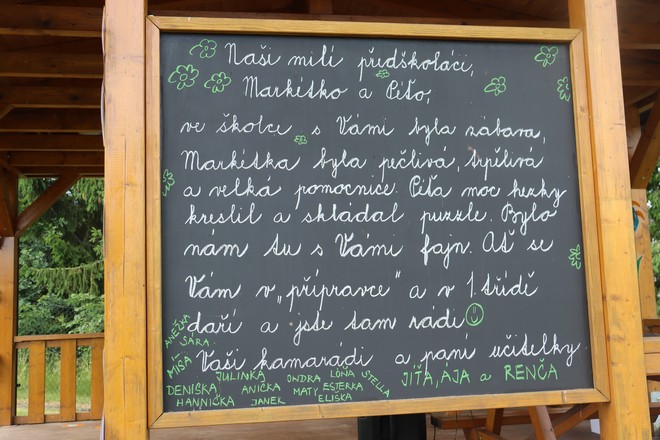 Naši milí předškoláci,
Markétko a Píťo,
ve školce s Vámi byla zábava,
Markétka byla pečlivá, trpělivá
a velká pomocnice. Píťa moc hezky
kreslil a skládal puzzle. Bylo
nám tu s Vámi fajn. Ať se
Vám v „přípravce" a v 1. třídě
daří a jste tam rádi
Vaši kamarádi a paní učitelky
ANEŽKA
SÁRA
MÍŠA
JULINKA ONDRA LÓŇA STELLA
DENISKA ANIČKA MATÝ ESTERKA
HANNIČKA JANEK ELIŠKA
JÍŤA, ÁJA a RENČA